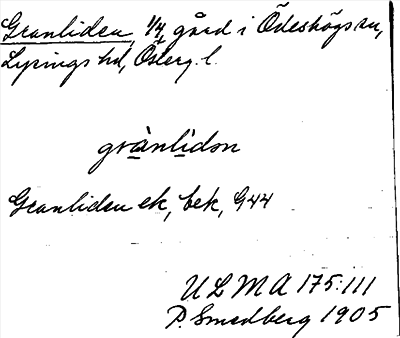 Granliden, 1/4 gård i Ödeshögs sn,
Lysings hd, Österg. l.
grànlìdən
Granliden ek, bek, G44
ULMA 175:111
P. Smedberg 1905